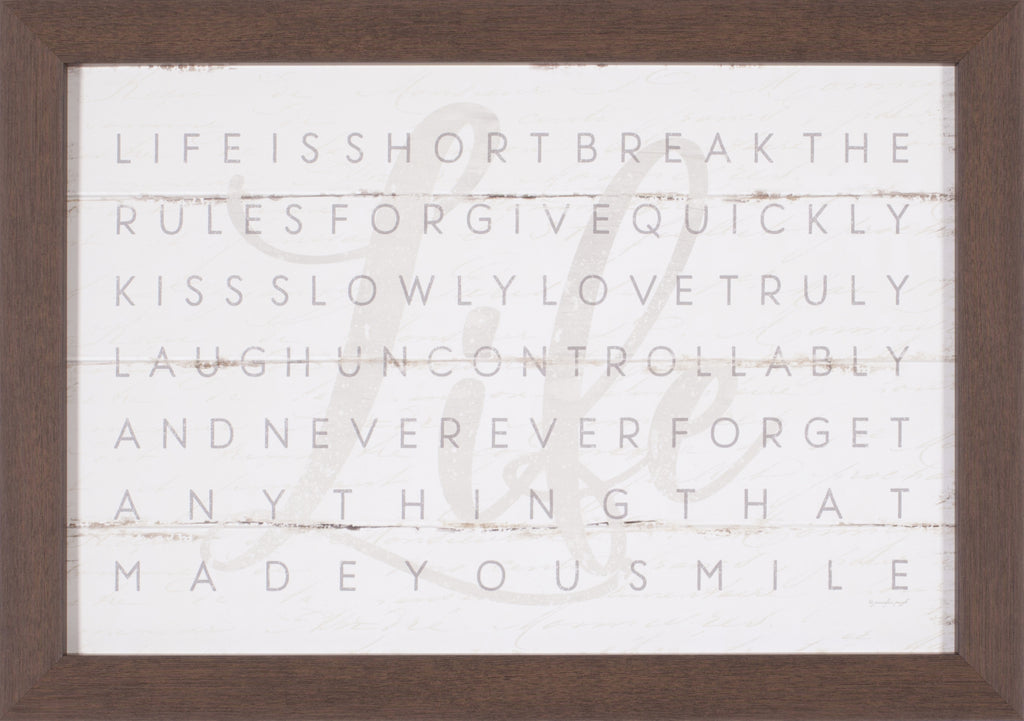 LIFE IS SHORT BREAK THE
RULES FORGIVE QUICKLY
KISS SLOWLY LOVE TRULY
LAUGH UNCONTROLLABLY
AND NEVER EVER FORGET
ANYTHING THAT
MADE YOU SMILE
Life